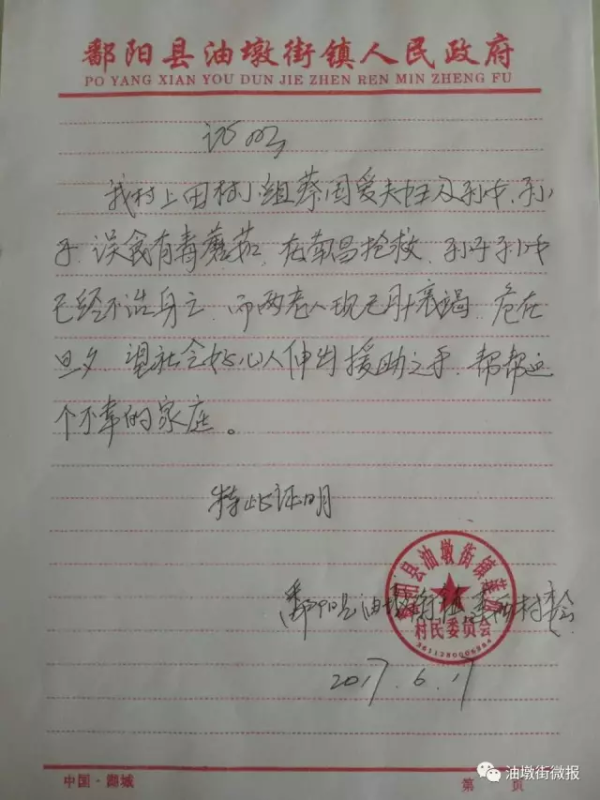 鄱阳县油墩街镇人民政府
PO YANG XIAN YOU DUN JIE ZHEN REN MIN ZHENG FU
证明
我村上田村小组蔡国爱夫妇及孙女、孙
子误食有毒蘑茹,在南昌抢救,孙子孙女
已经不治身亡,而两老人现已肝衰竭,危在
旦夕,望社会好心人伸出援助之手,帮帮这
个不幸的家庭。
特此证明
鄱阳县油墩街镇
村民委员会
3611280006984
鄱阳县油墩街镇 村委会
2017.6.17
中国·鄱城
第 页
油墩街微报